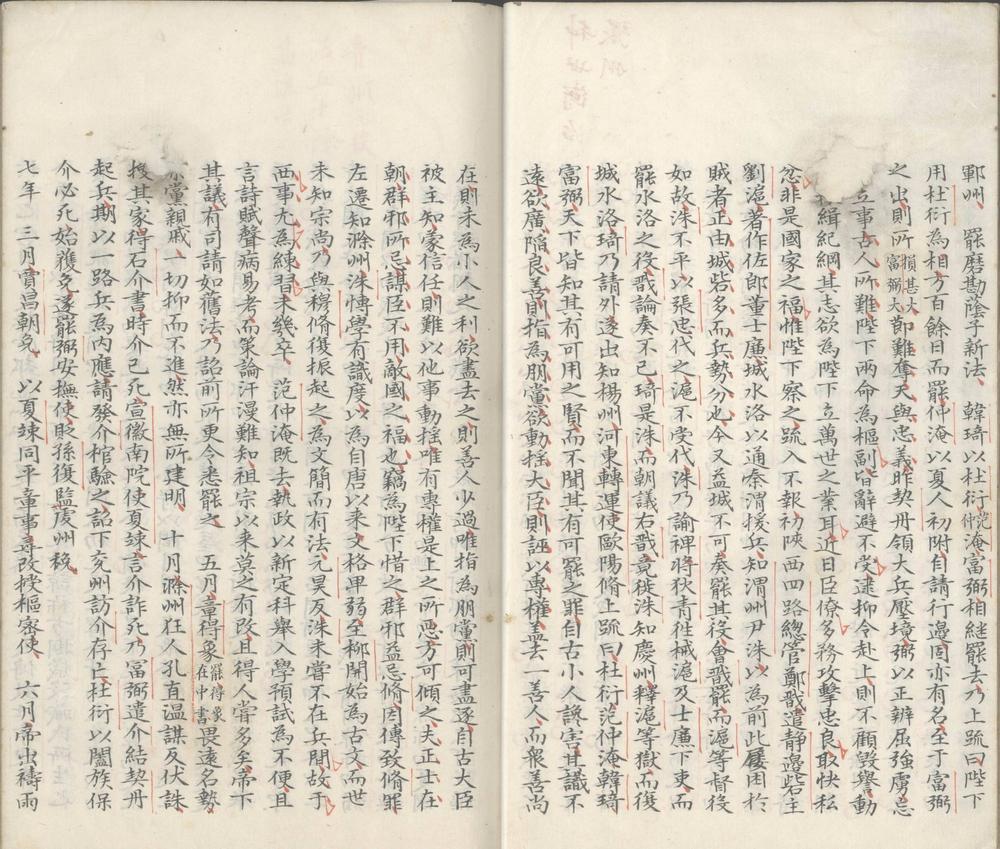 鄆州罷磨勘蔭子新法韓琦以杜衍范仲淹富弼相継罷去乃上䟽曰陛下
用杜衍為相方百餘日而罷仲淹以夏人初附自請行邊固亦有名至于富弼
之出則所損甚大富弼大節難奪天與忠義昨契丹領大兵壓境弼以正辨屈強虜忘
立事古人所難陛下兩命為樞副皆辭避不受逮抑令赴上則不顧毀譽動
緝紀綱其志欲為陛下立萬世之業耳近日臣僚多務攻擊忠良取快私
忿非是國家之福惟陛下察之疏入不報初陝西四路緫管鄭戩遣静邉砦主
劉滬著作佐郎董士廉城水洛以通秦渭援兵知渭州尹洙以為前此屢困於
賊者正由城砦多而兵勢分也今又益城不可奏罷其役會戩罷而滬等督役
如故洙不平以張忠代之滬不受代洙乃諭裨將狄青徃械滬及士廉下吏而
罷水洛之役戩論奏不已琦是洙而朝議右戩竟徙洙知慶州釋滬等獄而復
城水洛琦乃請外遂出知楊州河東轉運使歐陽脩上䟽曰杜衍范仲淹韓琦
富弼天下皆知其有可用之賢而不聞其有可罷之罪自古小人讒害其識不
遠欲廣陷良善則指為朋黨欲動揺大臣則誣以專權盖去一善人而衆善尚
在則未為小人之利欲盡去之則善人少過唯指為朋黨則可盡逐自古大臣
被主知蒙信任則難以他事動揺唯有專權是上之所惡方可傾之夫正士在
朝群邪所忌謀臣不用敵國之福也竊為陛下惜之群邪益忌脩因傳致脩罪
左遷知滁州洙慱學有識度以為自唐以来文格卑弱至柳開始為古文而世
未知宗尚乃與穆脩復振起之為文簡而有法元昊反洙未嘗不在兵間故于
西事尤為練習未幾卒范仲淹既去執政以新定科舉入學預試為不便且
言詩賦聲病易考而策論汗漫難知祖宗以来莫之有改且得人嘗多矣帝下
其議有司請如舊法乃詔前所更令悉罷之五月章得象罷得象在中書畏遠名勢
黨親戚一切抑而不進然亦無所建明十月滁州狂人孔直温謀反伏誅
搜其家得石介書時介已死宣徽南院使夏竦言介詐死乃富弼遣介結契丹
起兵期以一路兵為内應請發介棺驗之詔下兖州訪介存亡杜衍以闔族保
介必死始獲免遂罷弼安撫使貶孫復監虔州稅
七年三月賈昌朝免以夏竦同平章事尋改授樞宻使六月帝出禱雨